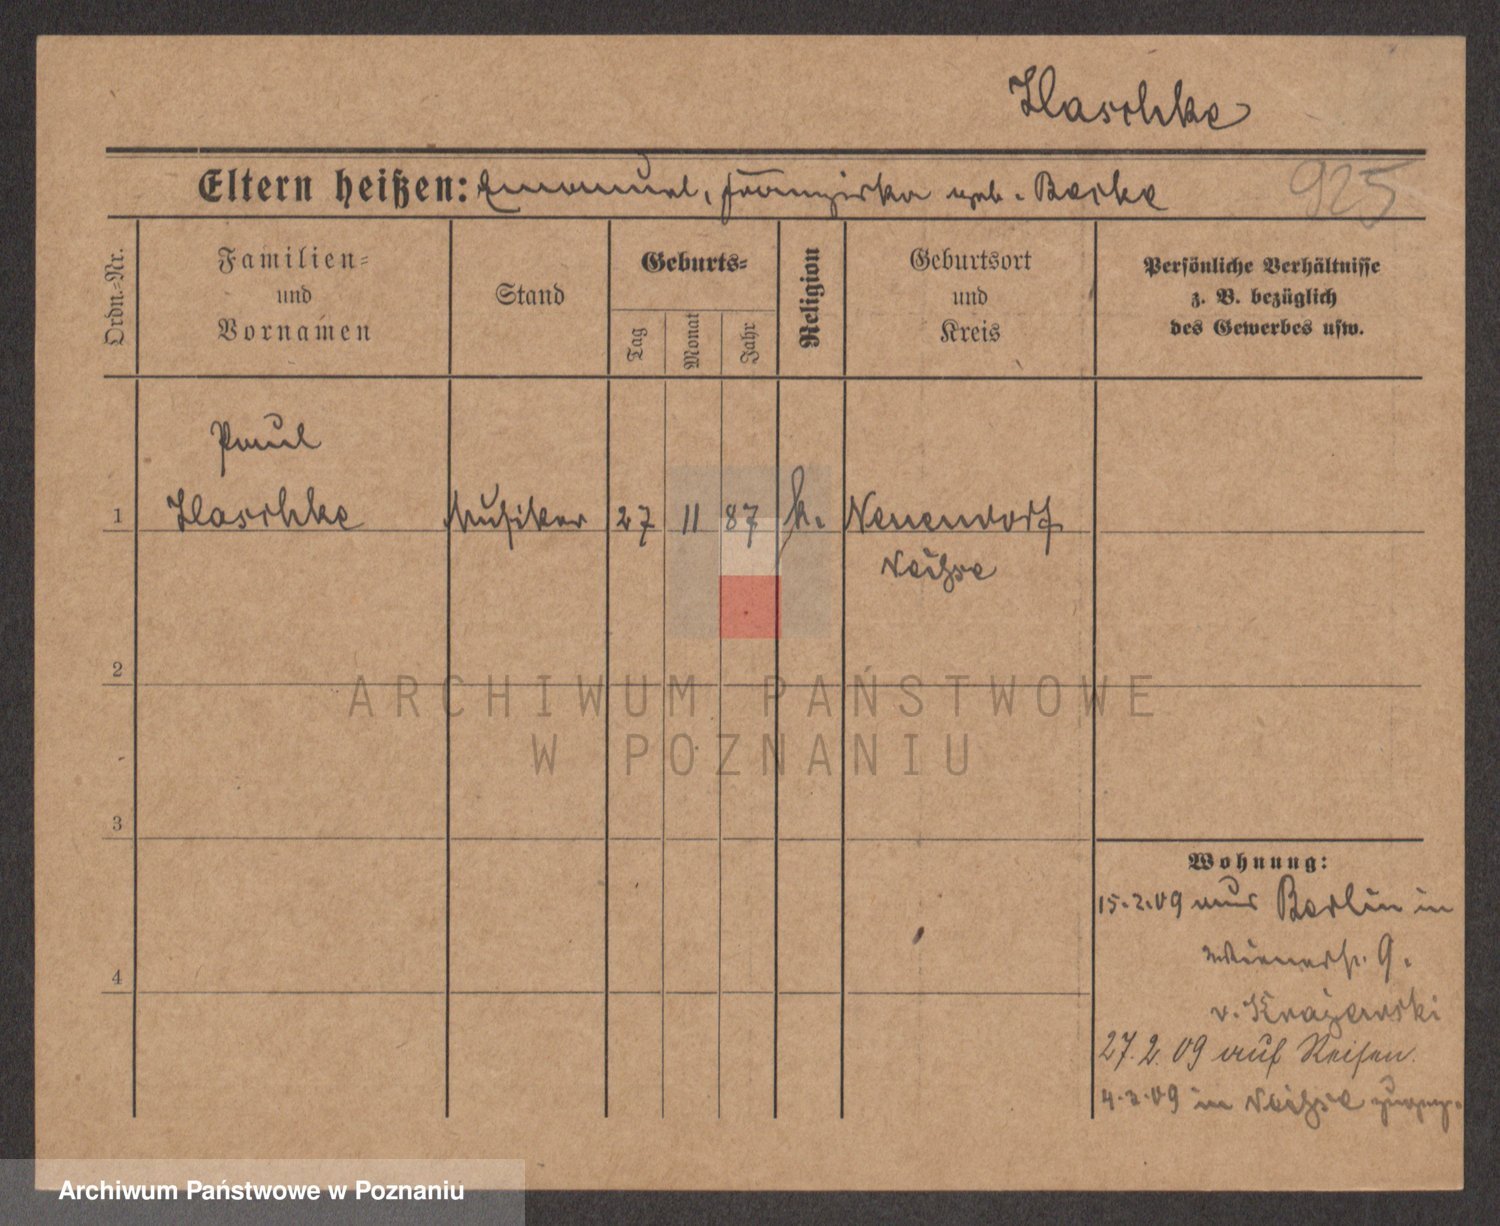 Klaschke
925
Eltern heißen: Emanuel, Franziska geb. Barke
Ordn.-Nr.
Familien-
und
Vornamen
Stand
Geburts-
Tag
Monat
Jahr
Religion
Geburtsort
und
Kreis
Persönliche Verhältnisse
z. B. bezüglich
des Gewerbes usw.
Paul
1 Klaschke Musiker 27 11 87 k. Neuendorf
Neiße
2
3
4
Wohnung:
15.2.09 aus Berlin in
Wienerstr. 9.
v. Krajewski
27.2.09 auf Reisen.
4.3.09 in Neiße zugezg.
ARCHIWUM PAŃSTWOWE
W POZNANIU
Archiwum Państwowe w Poznaniu